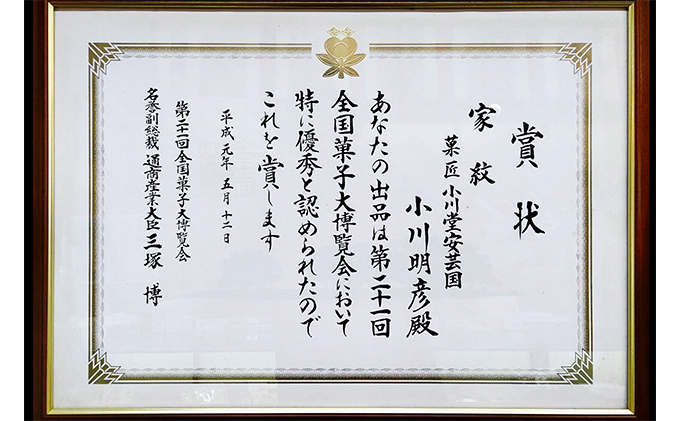 賞状
家紋
菓匠 小川堂安芸国
小川明彦殿
あなたの出品は第二十一回
全国菓子大博覧会において
特に優秀と認められたので
これを賞します
平成元年五月十二日
第二十一回全国菓子大博覧会
名誉副総裁 通商産業大臣 三塚博